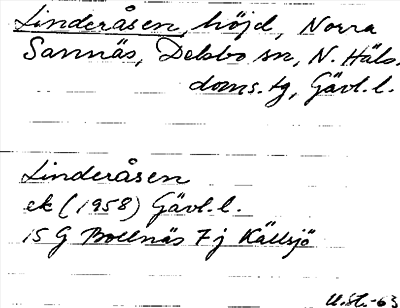 Linderåsen, höjd, Norra
Sannäs, Delsbo sn, N. Häls.
doms. tg, Gävl. l.
Linderåsen
ek (1958) Gävl. l.
15 G Bollnäs 7 j Källsjö
U.St.-63